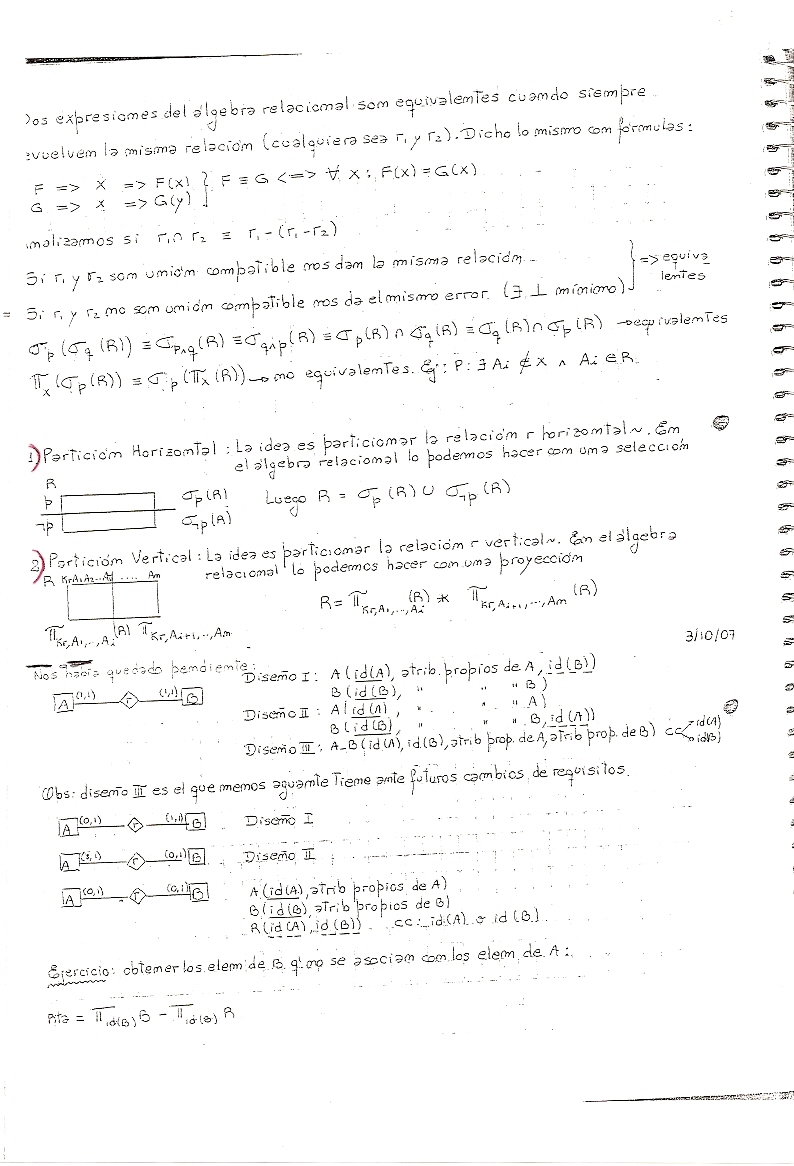 Dos expresiones del álgebra relacional son equivalentes cuando siempre
evuelven la misma relación (cualquiera sea r₁ y r₂). Dicho lo mismo con fórmulas:
F => X => F(x) } F ≡ G <=> ∀ X : F(x) = G(x)
G => X => G(y)
Analizamos si r₁ ∩ r₂ ≡ r₁ - (r₁ - r₂)
Si r₁ y r₂ son unión compatible nos dan la misma relación
= Si r₁ y r₂ no son unión compatible nos da el mismo error. (∃ ⊥ mínimo) } => equiva
lentes
σp (σq (R)) ≡ σp∧q (R) ≡ σq∧p (R) ≡ σp (R) ∩ σq (R) ≡ σq (R) ∩ σp (R) → equivalentes
πx (σp (R)) ≡ σp (πx (R)) → no equivalentes. Ej: P: ∃ Ai ∉ X ∧ Ai ∈ R.
1) Partición Horizontal : La idea es particionar la relación r horizontal~. En
el álgebra relacional lo podemos hacer con una selección
R
p σp (R) Luego R = σp (R) ∪ σ¬p (R)
¬p σ¬p (R)
2) Partición Vertical : La idea es particionar la relación r vertical~. En el álgebra
relacional lo podemos hacer con una proyección
R Kr A₁ A₂...Ai .... Am
R = πKr,A₁,...,Ai (R) * πKr,Ai+1,...,Am (R)
πKr,A₁,...,Ai (R) πKr,Ai+1,...,Am
3/10/07
Nos había quedado pendiente:
A (1,1) r (1,1) B
Diseño I : A (id(A), atrib. propios de A, id(B))
B (id(B), " " " B)
Diseño II : A (id(A), " " " A)
B (id(B), " " " B, id(A))
Diseño III : A-B (id(A), id(B), atrib prop. de A, atrib prop. de B) CC< id(A)
id(B)
Obs: diseño III es el que menos aguante tiene ante futuros cambios de requisitos.
A (0,1) r (1,1) B Diseño I
A (1,1) r (0,1) B Diseño II
A (0,1) r (0,1) B A (id(A), atrib propios de A)
B (id(B), atrib propios de B)
R (id(A), id(B)) CC: id(A) o id(B).
Ejercicio: obtener los elem de B q' no se asocian con los elem de A :
Rta = πid(B) B - πid(B) R